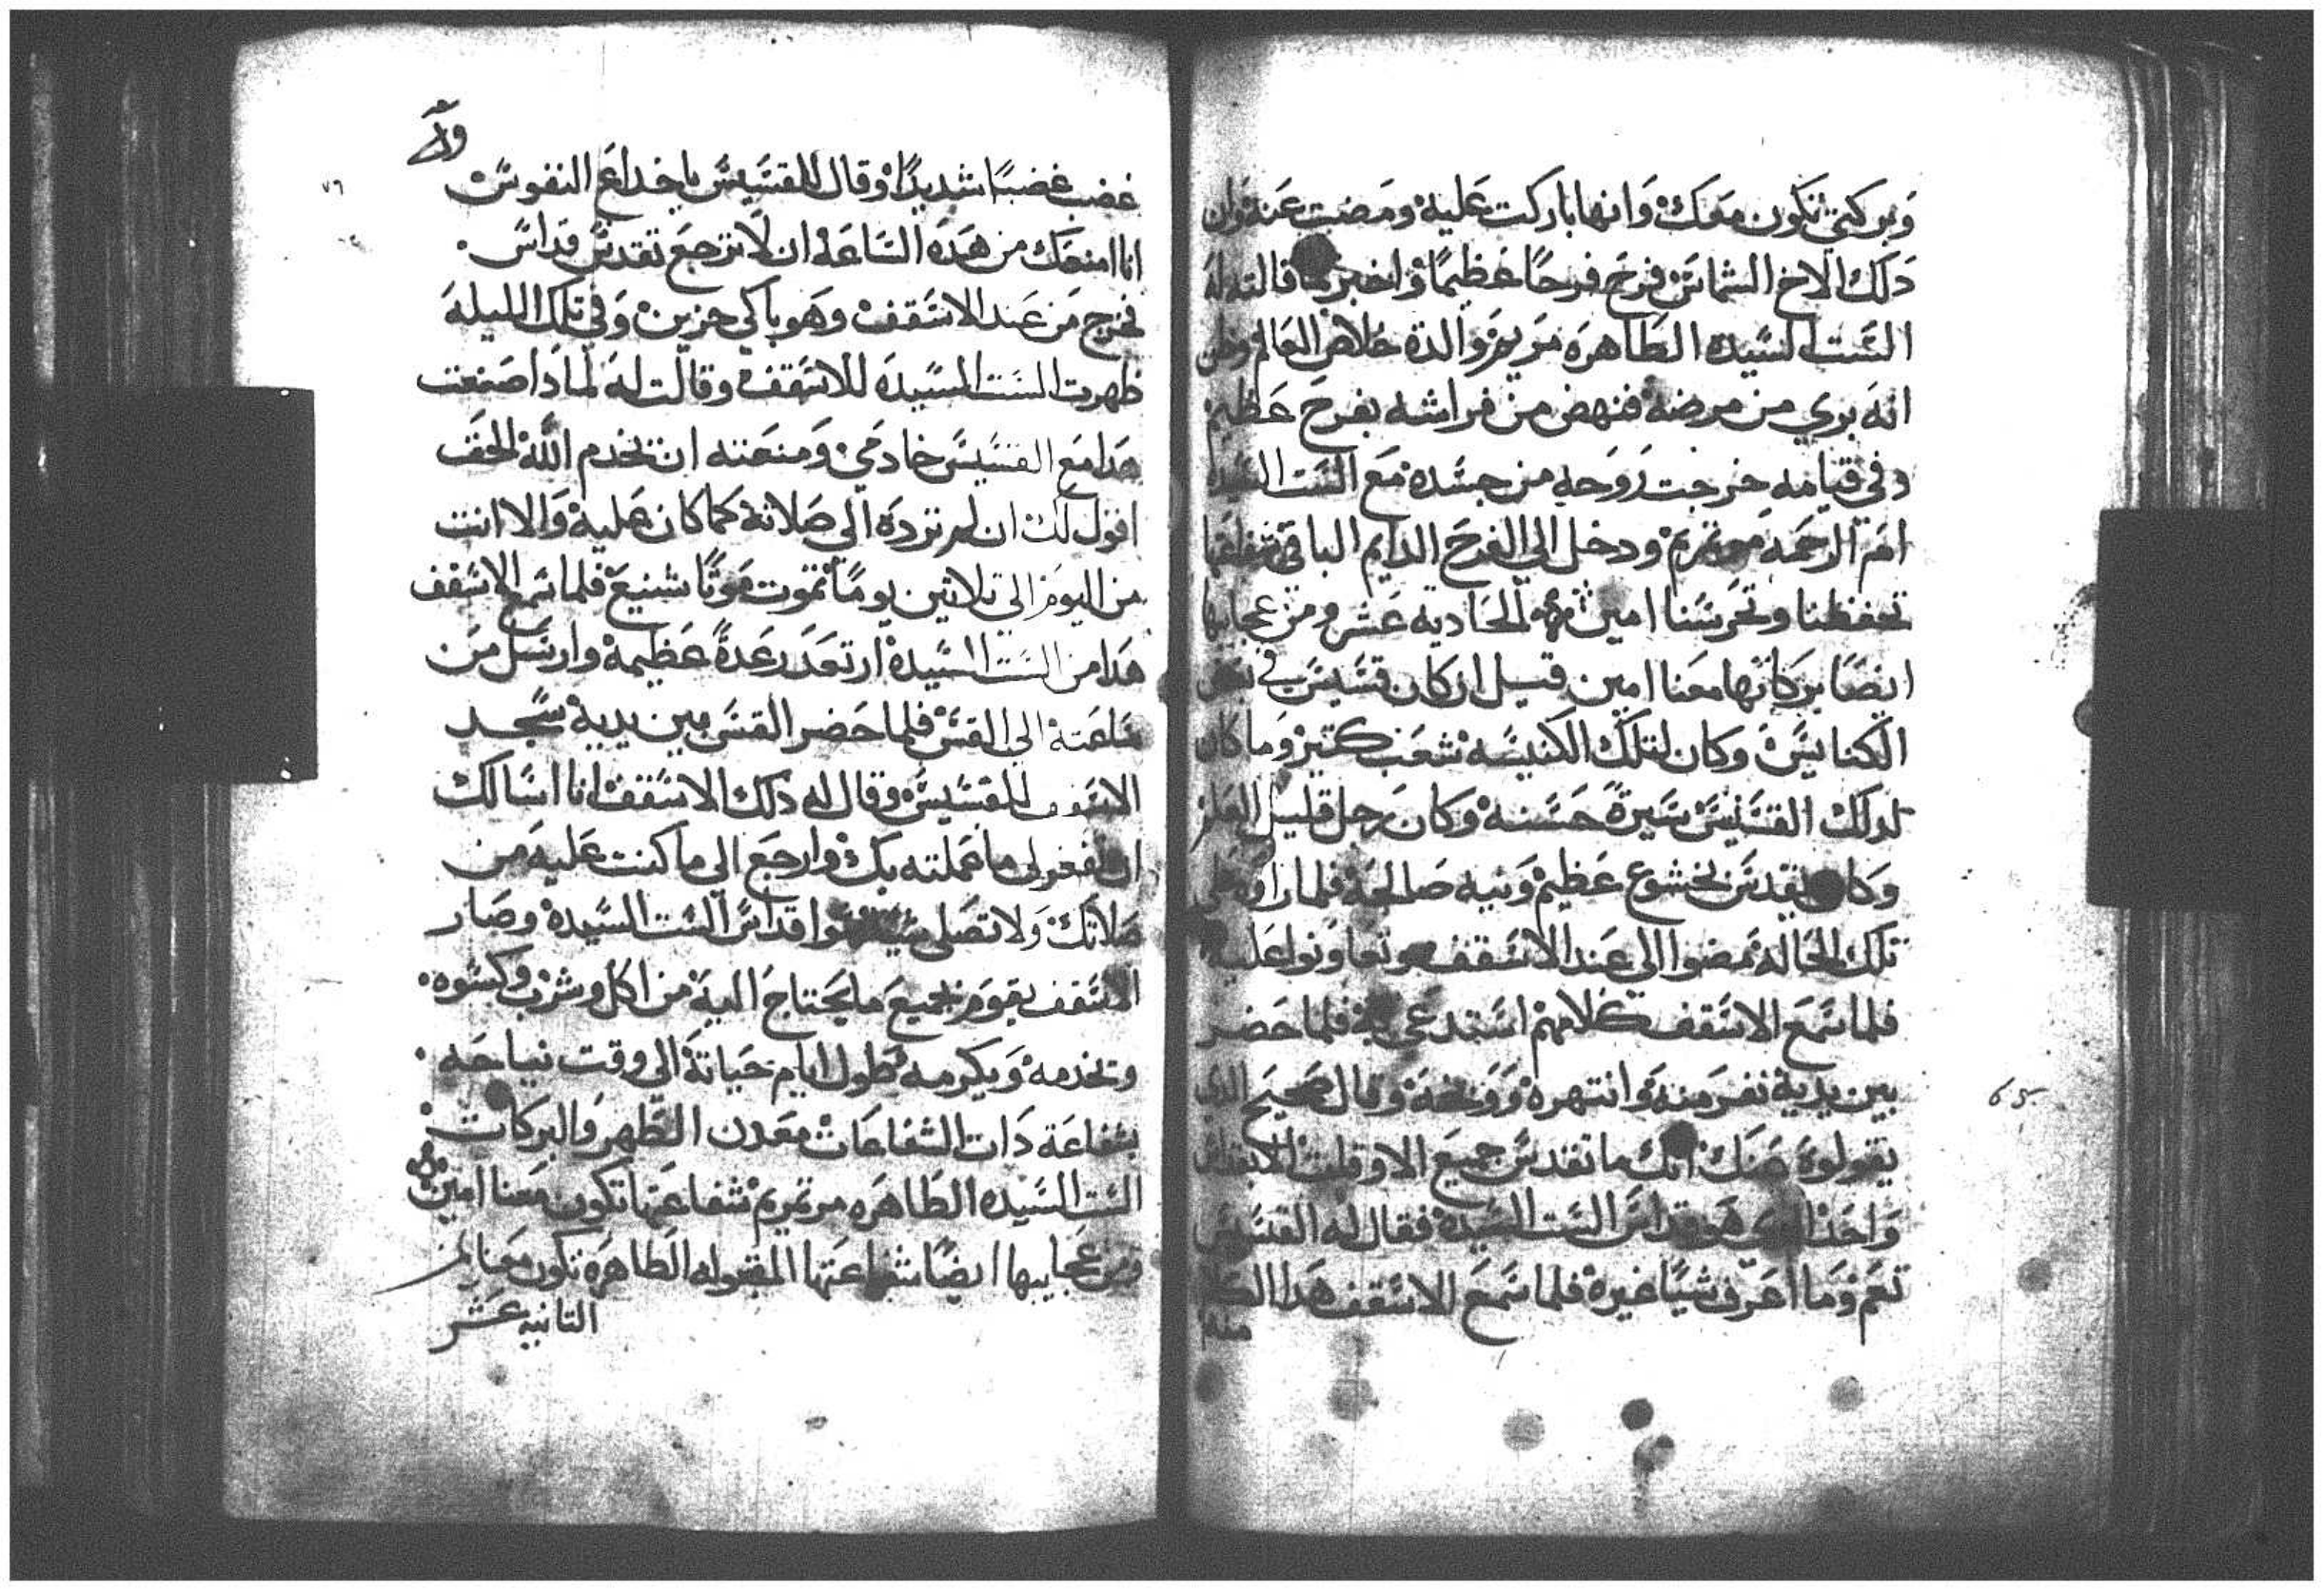 وبركتي تكون معك وانها باركت عليه ومضت عنه وان
دلك الاخ الشماس فرح فرحا عظيما واخبر بما قالته له
الست السيده الطاهره مريم والدة خلاص العالم وظن
انه بري من مرضه فنهض من فراشه بفرح عظيم
وفي قيامه خرجت روحه من جسده مع الست السيده
ام الرحمه مرتمريم ودخل الي الفرح الدايم الباقي شفاعتها
تحفظنا وتحرسنا امين الحاديه عشر ومن عجايبها
ايضا بركاتها معنا امين قيل ان كان قسيس في بعض
الكنايس وكان لتلك الكنيسه شعب كتير وما كان
لدلك القسيس سيرة حسنه وكان رجل قليل العلم
وكان يقدس بخشوع عظيم ونيه صالحه فلما راوه علي
تلك الحاله مضوا الي عند الاسقف وتعاونوا عليه
فلما سمع الاسقف كلامهم استدعي به فلما حضر
بين يديه نفر منه وانتهره ووبخه وقال صحيح الدي
يقولوه عنك انك ما تقدس جميع الاوقات الا بقداس
واحد الدي هو قداس الست السيدة فقال له القسيس
نعم وما اعرف شيا غيره فلما سمع الاسقف هدا الكلام
منه
٧٦
غضب غضبا شديدا وقال للقسيس يا خداع النفوس
انا امنعك من هده الساعه ان لا ترجع تقدس قداس
فخرج من عند الاسقف وهو باكي حزين وفي تلك الليله
ظهرت الست السيده للاسقف وقالت له لمادا صنعت
هدا مع القسيس خادمي ومنعته ان يخدم الله الحق
اقول لك ان لم ترده الي صلاته كما كان عليه والا انت
من اليوم الي تلاتين يوما تموت موتا شنيع فلما سمع الاسقف
هدا من الست السيدة ارتعد رعدة عظيمة وارسل من
ساعته الي القس فلما حضر القس بين يديه سجد
الاسقف للقسيس وقال له دلك الاسقف انا اسالك
ان تغفر لي ما عملته بك وارجع الي ما كنت عليه من
صلاتك ولا تصلي سوا قداس الست السيدة وصار
الاسقف يقوم بجميع ما يحتاج اليه من اكل وشرب وكسوه
وتخدمه ويكرمه طول ايام حياته الي وقت نياحه
بشفاعة دات الشفاعات معدن الطهر والبركات
الست السيده الطاهره مرتمريم شفاعتها تكون معنا امين
ومن عجايبها ايضا شفاعتها المقبوله الطاهره تكون معنا امين
التانيه عشر